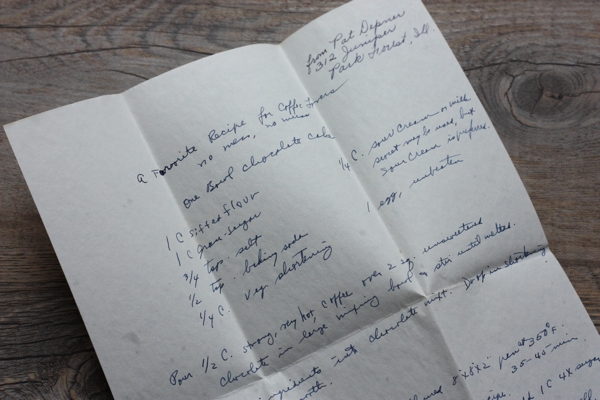 from Pat Depner
312 Juniper
Park Forest, Ill.
a Favorite Recipe for Coffee Lovers
no mess, no muss
One Bowl Chocolate Cake
1 C sifted flour
1 C gran. sugar
3/4 tsp. salt
1/2 tsp. baking soda
1/4 C. veg shortening
1/4 C. sour cream or milk
sweet may be used, but
sour cream is preferred.
1 egg, unbeaten
Pour 1/2 C. strong, very hot coffee over 2 sq. unsweetened
chocolate in large mixing bowl & stir until melted.
ingredients into chocolate mixt. Drop in shortening
8"x8"x2" pan at 350° F.
35-45 min.
1 C 4X sugar